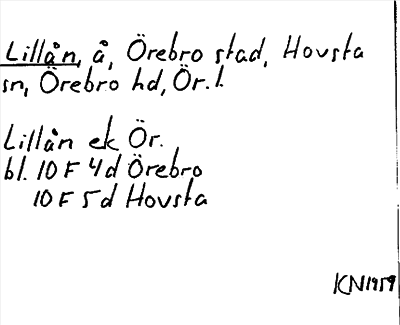 Lillån, å, Örebro stad, Hovsta
sn, Örebro hd, Ör. l.
Lillån ek Ör.
bl. 10 F 4 d Örebro
10 F 5 d Hovsta
KN 1959